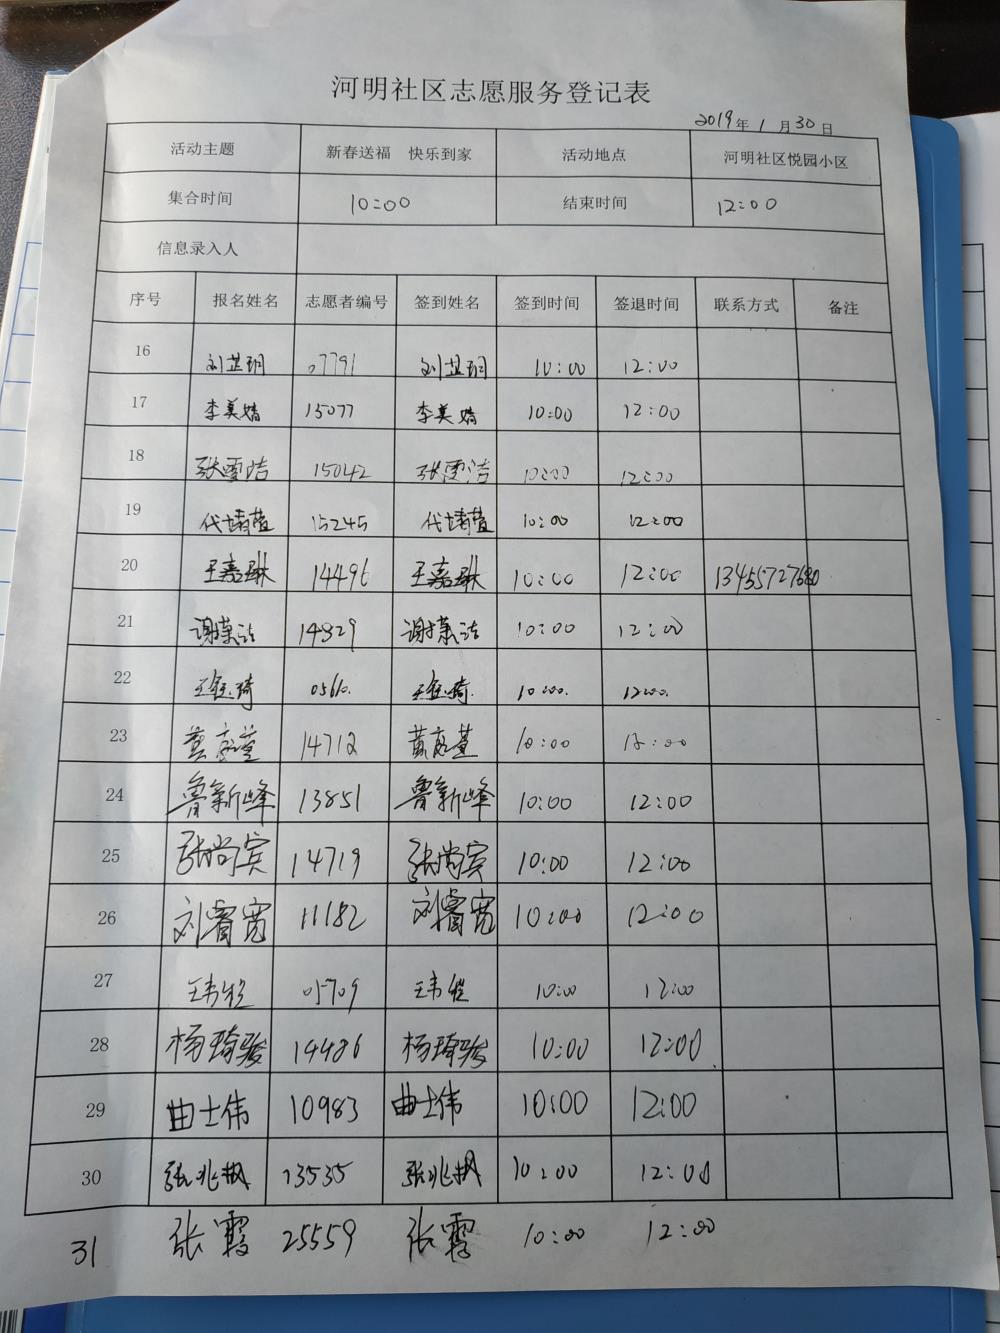 河明社区志愿服务登记表
2019年 1 月 30 日
活动主题 新春送福 快乐到家 活动地点 河明社区悦园小区
集合时间 10:00 结束时间 12:00
信息录入人
序号 报名姓名 志愿者编号 签到姓名 签到时间 签退时间 联系方式 备注
16 刘芷玥 07791 刘芷玥 10:00 12:00
17 李美婧 15077 李美婧 10:00 12:00
18 张雪洁 15042 张雪洁 10:00 12:00
19 代婧萱 15245 代婧萱 10:00 12:00
20 王嘉琳 14496 王嘉琳 10:00 12:00 13455727680
21 14829 10:00 12:00
22 10:00. 12:00.
23 14712 10:00 12:00
24 鲁新峰 13851 鲁新峰 10:00 12:00
25 张尚宾 14719 张尚宾 10:00 12:00
26 刘睿宽 11182 刘睿宽 10:00 12:00
27 05709 10:00 12:00
28 杨琦骏 14486 杨琦骏 10:00 12:00
29 曲士伟 10983 曲士伟 10:00 12:00
30 张兆枫 13535 张兆枫 10:00 12:00
31 张霞 25559 张霞 10:00 12:00